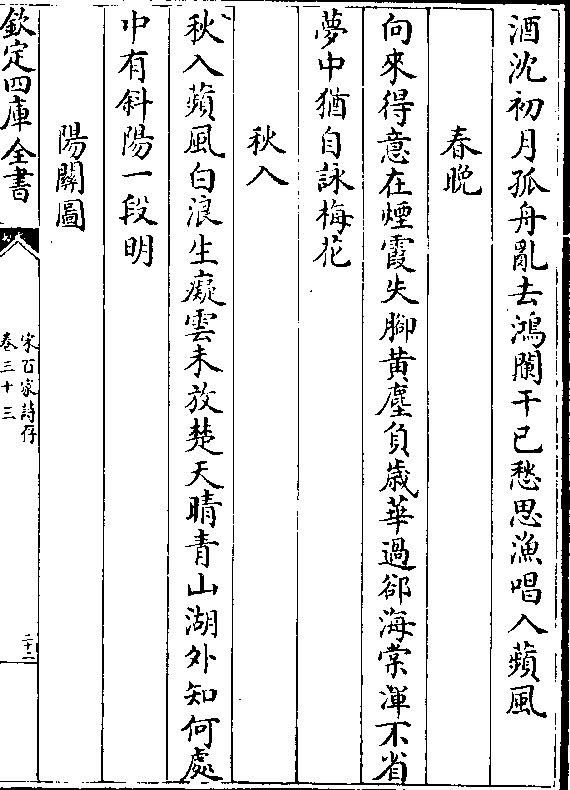 酒沈初月孤舟亂去鴻闌干已愁思漁唱入蘋風
春晚
向來得意在煙霞失腳黃塵負歲華過卻海棠渾不省
夢中猶自詠梅花
秋入
秋入蘋風白浪生癡雲未放楚天晴青山湖外知何處
中有斜陽一段明
陽關圖
欽定四庫全書
宋百家詩存
卷三十三
二十二